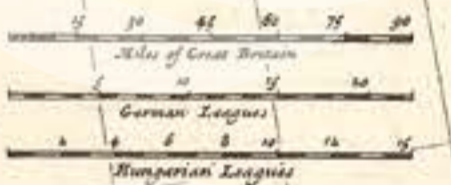 15 30 45 60 75 90
Miles of Great Britain
5 10 15 20
German Leagues
2 4 6 8 10 12 15
Hungarian Leagues